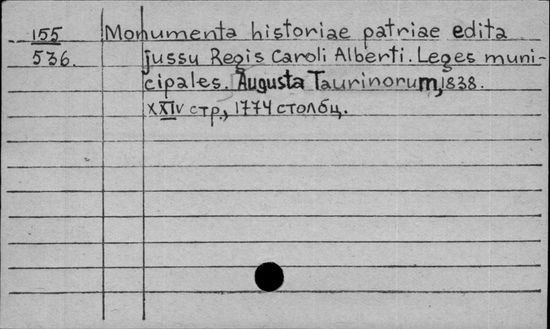 155 Monumenta historiae patriae edita
536. jussu Regis Caroli Alberti. Leges muni-
cipales. Augusta Taurinorum, 1838.
XXIV стр., 1774 столбц.